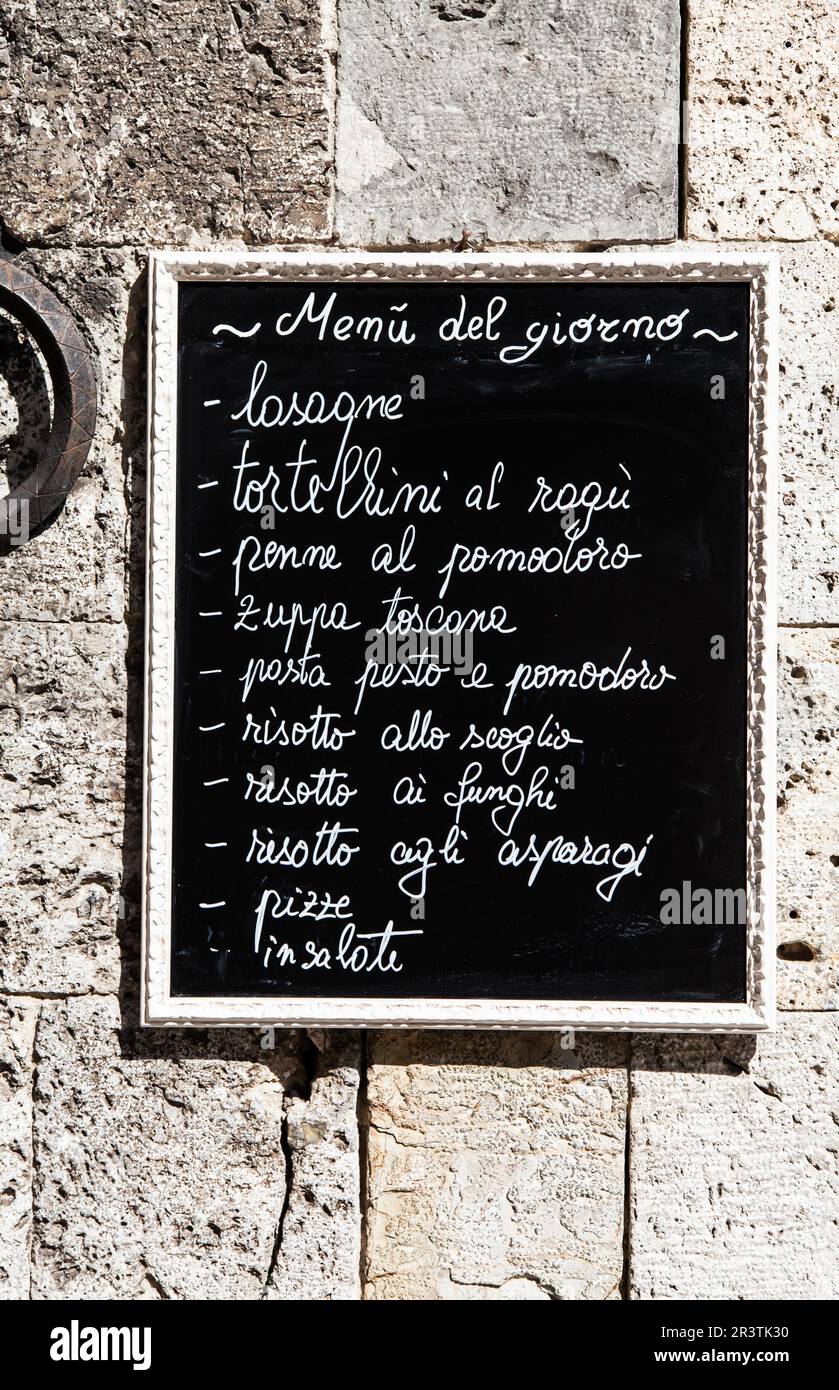 ~ Menũ del giorno ~
- lasagne
- tortellini al ragù
- penne al pomodoro
- zuppa toscana
- pasta pesto e pomodoro
- risotto allo scoglio
- risotto ai funghi
- risotto agli asparagi
- pizze
- insalate
alamy
Image ID: 2R3TK30
www.alamy.com